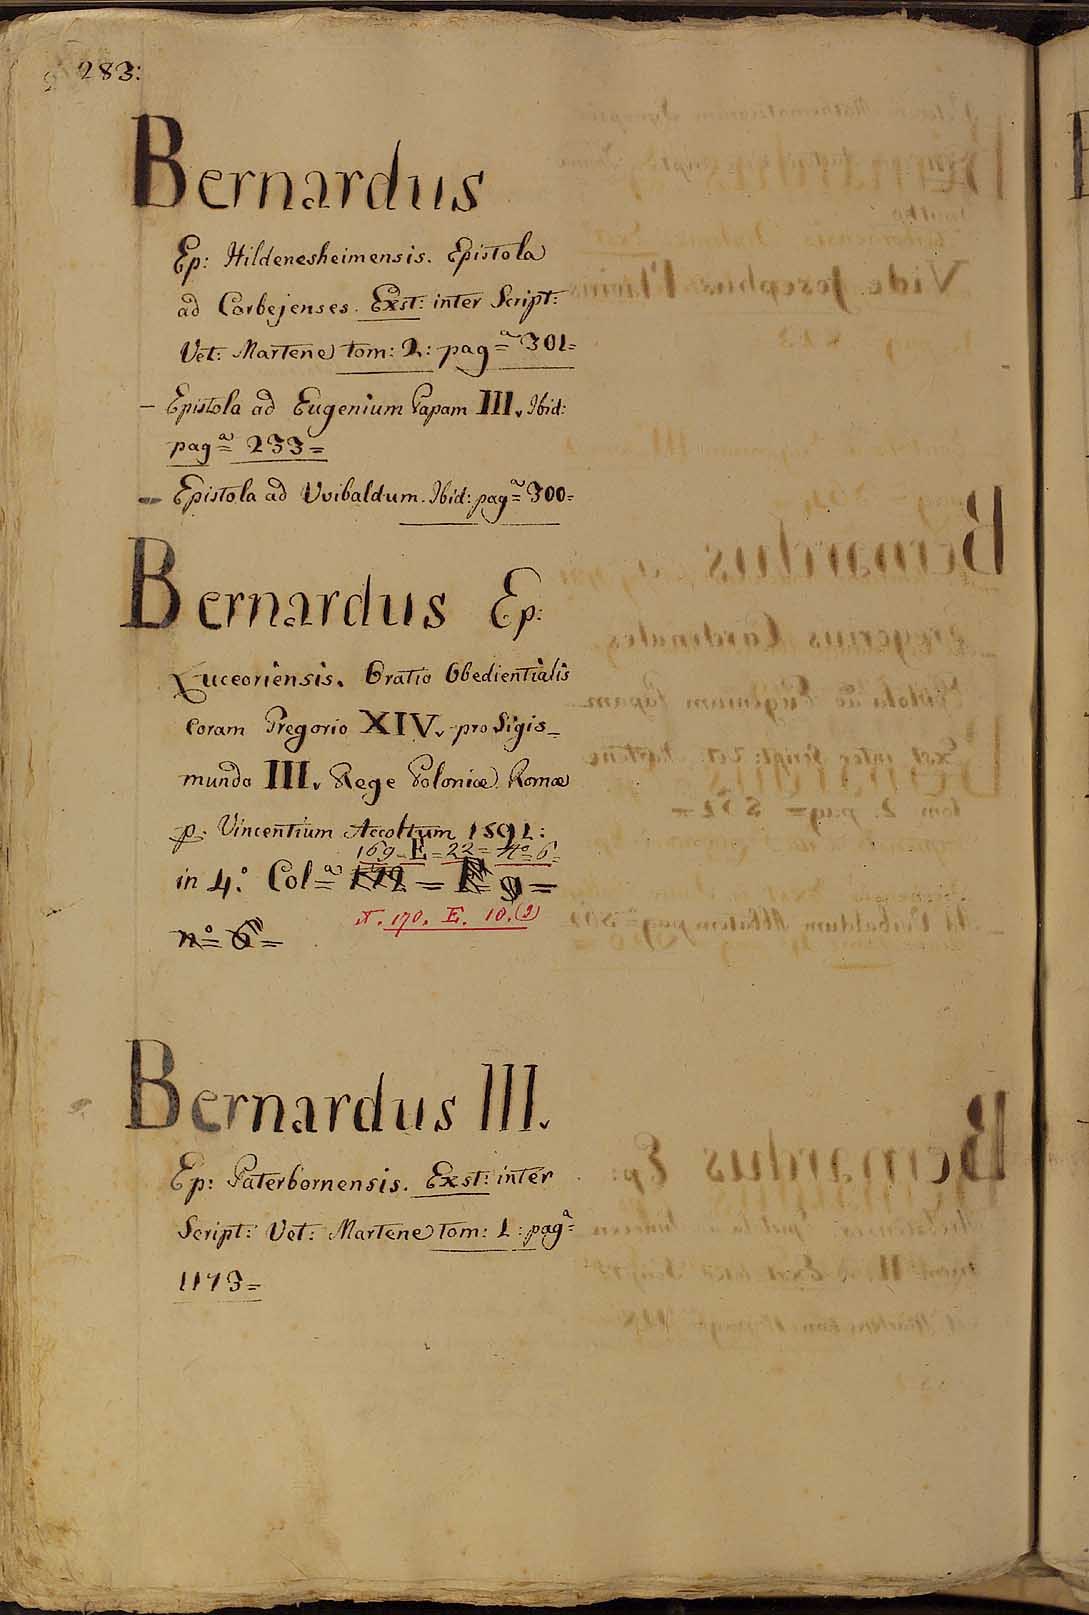 283:
Bernardus
Ep: Hildenesheimensis. Epistola
ad Corbejenses. Exst: inter Script:
Vet: Martene tom: 2: pagᵃ= 301=
– Epistola ad Eugenium Papam III. Ibid:
pagᵃ= 233=
– Epistola ad Vvibaldum. Ibid: pagᵃ= 300=
Bernardus Ep:
Luceoriensis. Oratio Obedientialis
coram Gregorio XIV. pro Sigis_
mundo III. Rege Poloniæ. Romæ
p. Vincentium Accoltum 1591:
169= E= 22= nº 6=
in 4º. Colᵃ= 172 = = 9 =
N. 170. E. 10.(2)
nº= 6=
Bernardus III.
Ep: Paterbornensis. Exst: inter
Script: Vet: Martene tom: 1: pagᵃ=
1173=